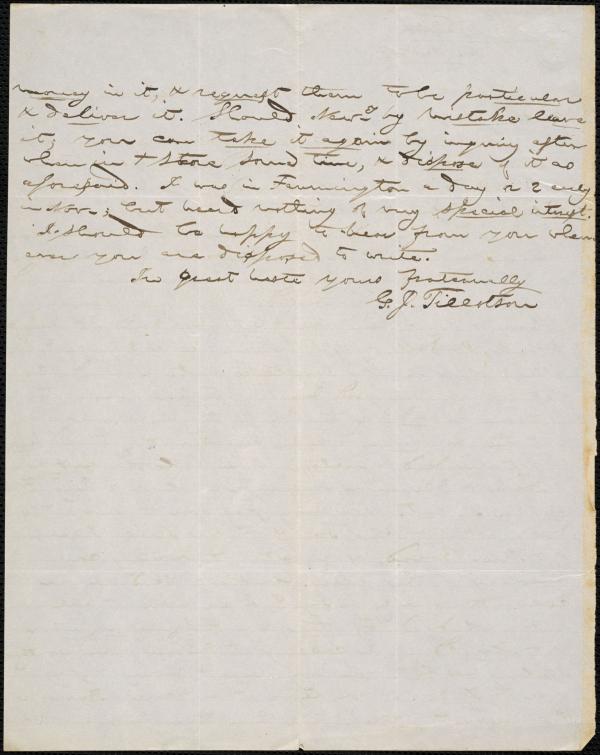 money in it, & request them to be particular
& deliver it. Should by mistake leave
it, you can take it again by inquiry after
when in & Store some time, & dispose of it as
aforesaid. I was in Farmington a day or 2 early
in Nov.; but heard nothing of very special intrst.
I should be happy to hear from you when
ever you are disposed to write.
In great haste yours fraternally
G. J. Tillotson